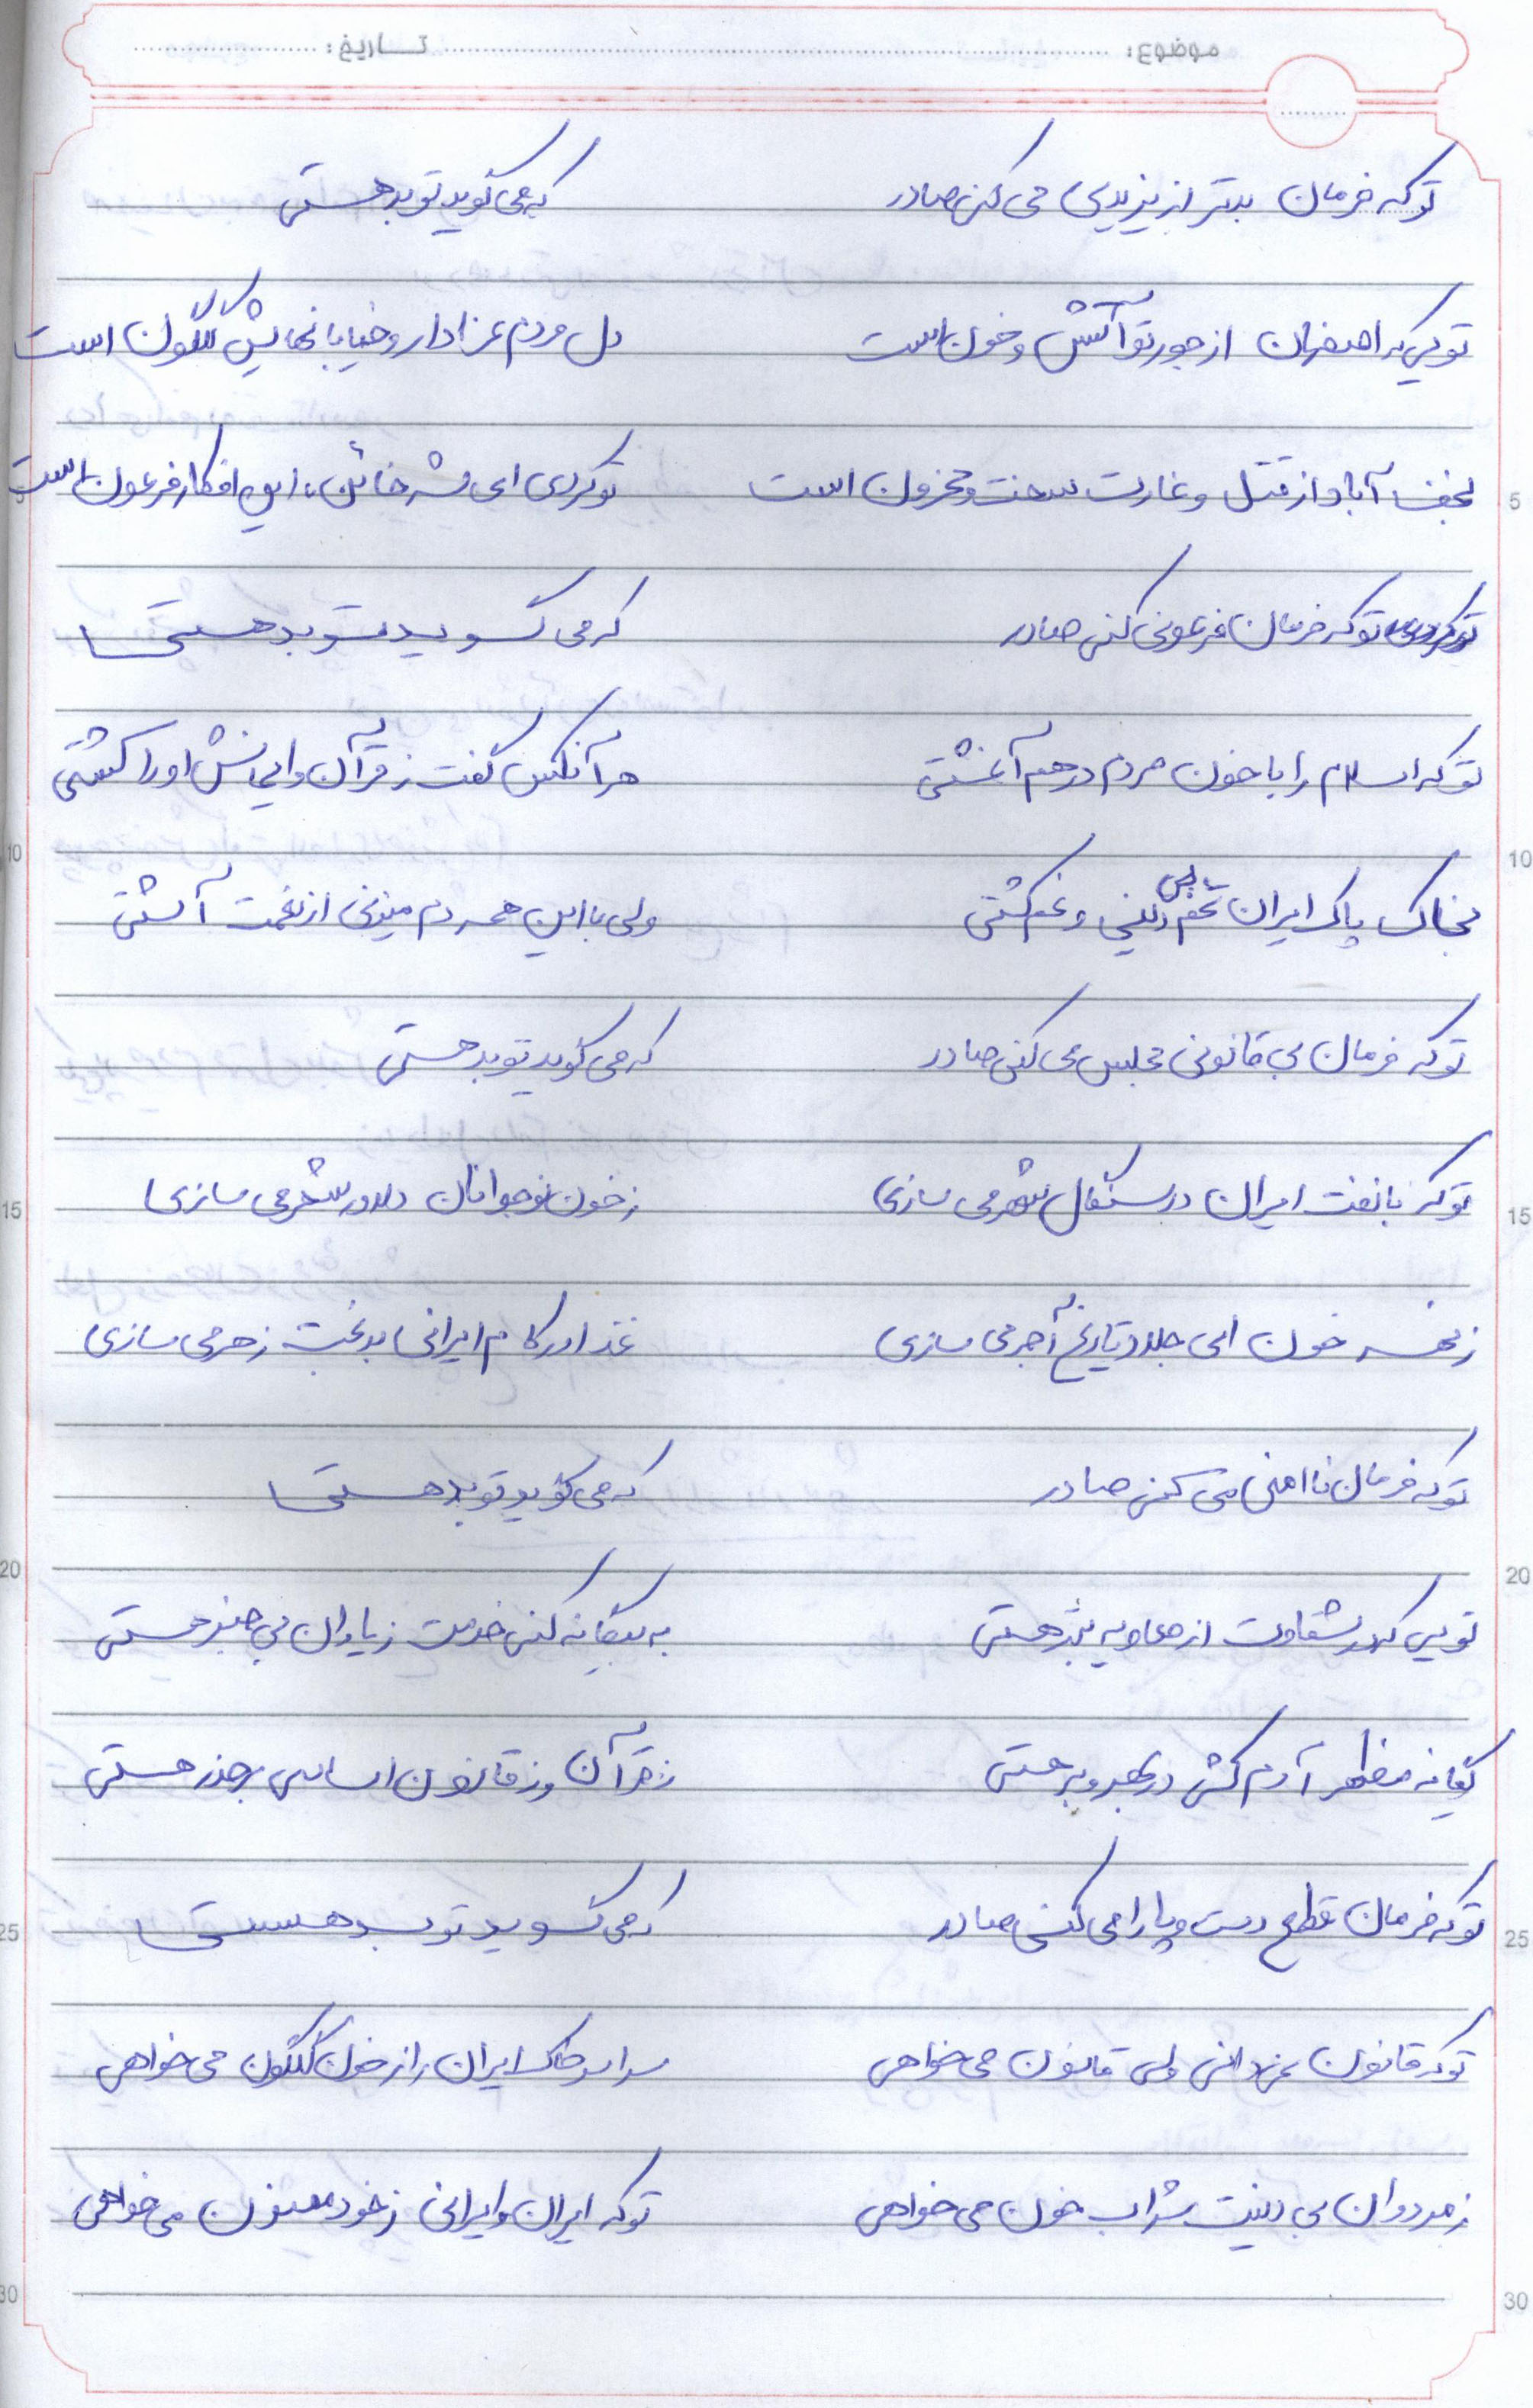 موضوع: تاریخ:
تو که فرمان بدتر از یزیدی می کنی صادر که می گوید تو بد هستی
تویی که اصفهان از جور تو آتش و خون است دل مردم عزادار و خیابانهایش گلگون است
نجف آباد از قتل و غارت سخت محزون است تو کردی ای شه خائن، این افکار فرعون است
تو که فرمان فرعونی کنی صادر که می گوید تو بد هستی
تو که اسلام را با خون مردم در هم آغشتی هر آنکس گفت ز قرآن و ایمانش او را کشتی
بخاک پاک ایران تخم بی دینی و غم کشتی ولی با این همه دم میزنی از نغمت آشتی
تو که فرمان بی قانونی مجلس می کنی صادر که می گوید تو بد هستی
تو که با نفت ایران در سنگال شهر می سازی ز خون نوجوانان دلاور نهر می سازی
ز خون ای جلاد تاریخ آجر می سازی غذا در کام ایرانی بدبخت زهر می سازی
تو که فرمان ناامنی می کنی صادر که می گوید تو بد هستی
تویی که در شقاوت از معاویه بتر هستی به بیگانه کنی خدمت ز یاران بی خبر هستی
یگانه مظهر آدم کشی در بحر و بر هستی ز قرآن و ز قانون اساسی بر حذر هستی
تو که فرمان قطع دست و پا را می کنی صادر که می گوید تو بد هستی
تو که قانون نمی دانی ولی قانون می خواهی سراسر خاک ایران را ز خون گلگون می خواهی
ز مزدوران بی دینت شراب خون می خواهی تو که ایران و ایرانی ز خود ممنون می خواهی
5
10 10
15 15
20 20
25 25
30 30